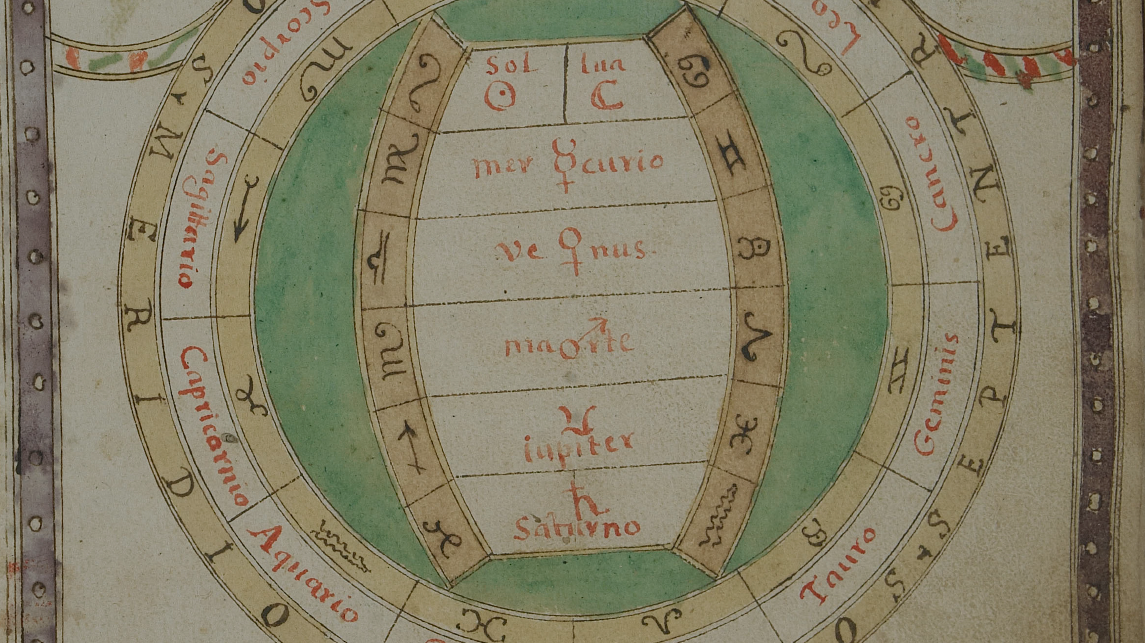 Scorpio
Leo
Cancro
Geminis
Tauro
Aquario
Capricornio
Sagittario
Sol lua
☉ ☾
mer ☿ curio
ve ♀ nus
ma ♂ rte
♃
iupiter
♄
Saturno
♌ ♋
♍ ♊
♎ ♉
♏ ♈
♐ ♓
♑ ♒
♏
♐
♑
♒
♓
♈
♉
♊
♋
♌
S MERIDIO
R TENTEPES S O